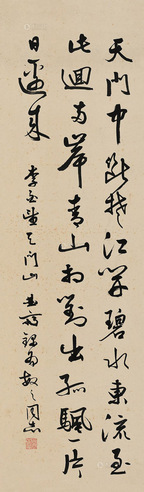 天門中斷楚江開碧水東流至
此迴兩岸青山相對出孤颿一片
日邊來
李白望天門山 書 之同志